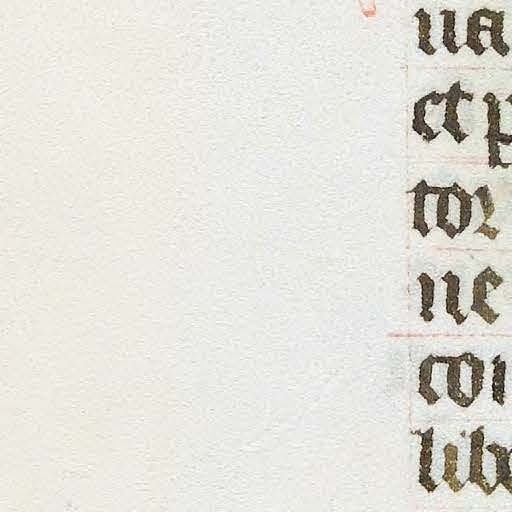 ua
et p
tor
ne
coi
libe